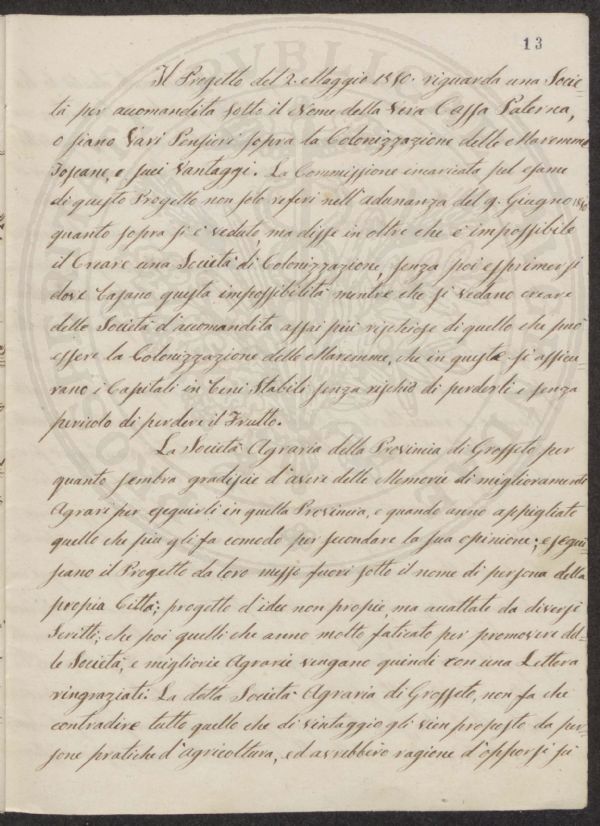 13
Il Progetto del 2. Maggio 1850. riguarda una Socie=
tà per accomandita sotto il Nome della Vera Cassa Paterna,
o siano Varj Pensieri sopra la Colonizzazione delle Maremme
Toscane, e suoi Vantaggi. La Commissione incaricata sul esame
di questo Progetto non solo referi nell'adunanza del 9. Giugno
quanto sopra si è veduto, ma disse in oltre che è impossibile
il Creare una Società di Colonizzazione, senza poi esprimersi
dove basano questa impossibilità mentre che si vedano creare
delle Società d'accomandita assai più rischiose di quello che può
essere la Colonizzazione delle Maremme, che in queste si assicu=
rano i Capitali in beni Stabili senza rischio di perderli e senza
pericolo di perdere il Frutto.
La Società Agraria della Provincia di Grosseto per
quanto sembra gradiscie d'avere delle Memorie di miglioramenti
Agrari per eseguirli in quella Provincia, e quando anno appigliato
quello che più gli fa comodo per secondare la sua opinione; eseguis=
cano il Progetto da loro messo fuori sotto il nome di persona della
propia Città; progetto d'idee non propie, ma accattate da diversi
Scritti, che poi quelli che anno molto faticato per promovere del=
le Società, e migliorie Agrarie vengano quindi con una Lettera
ringraziati. La detta Società Agraria di Grosseto, non fa che
contradire tutto quello che di vantaggio gli vien proposto da per=
sone pratiche d'agricoltura, ed avrebbiro ragione d'opporsi se